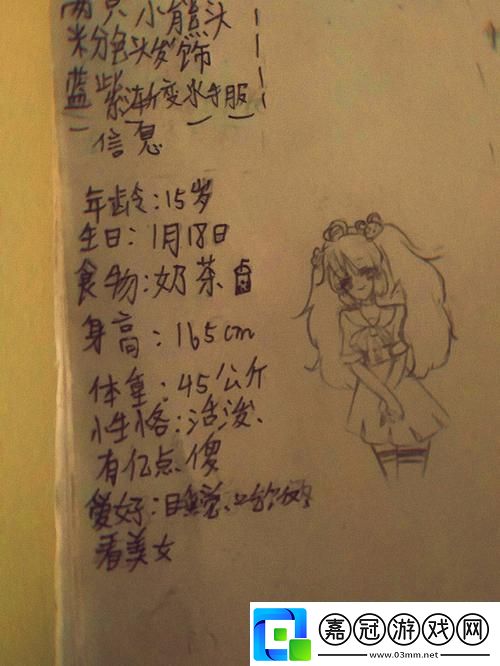 两只小熊头
粉色头发饰
蓝紫渐变水手服
信息
年龄:15岁
生日:1月18日
食物:奶茶
身高:165cm
体重:45公斤
性格:活泼、
有亿点傻
爱好:睡觉、
看美女
嘉冠游戏网
www.03mm.net